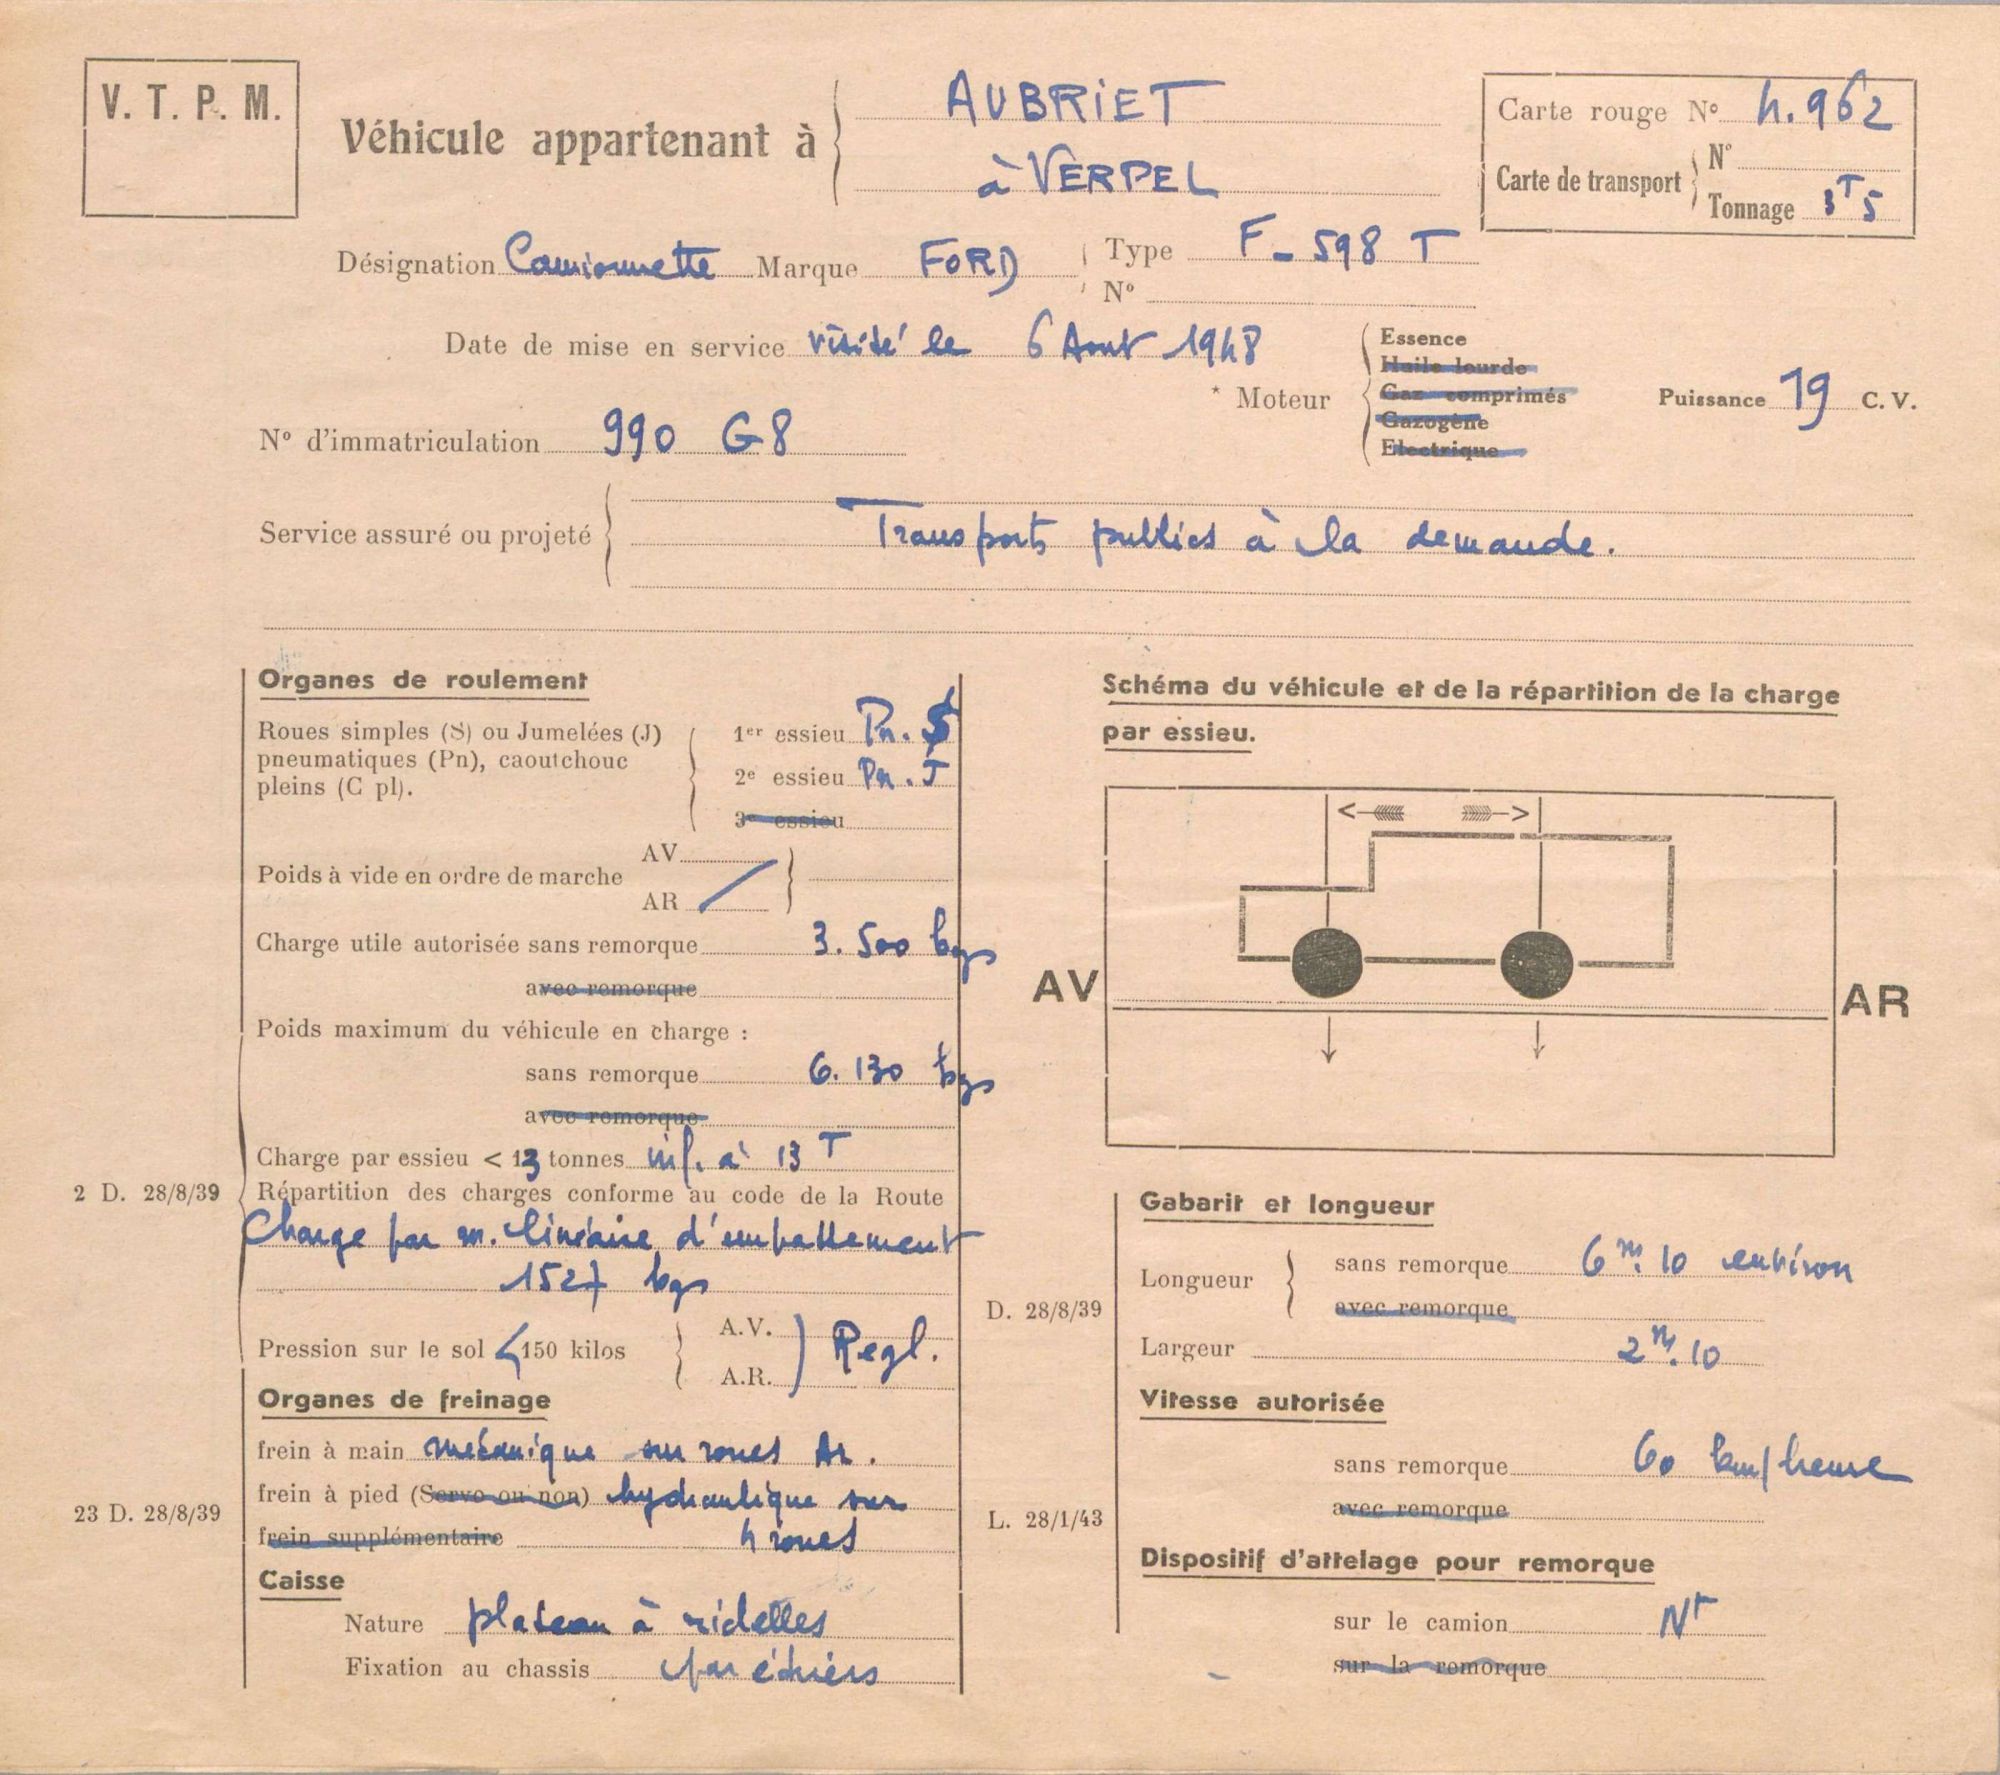 V. T. P. M.
Véhicule appartenant à
AUBRIET
à VERPEL
Carte rouge Nº 4.962
Carte de transport
Nº
Tonnage 3T5
Désignation Camionnette Marque FORD Type F - 598 T
Nº
Date de mise en service visité le 6 Aout 1948
* Moteur
Essence
Huile lourde
Gaz comprimés
Gazogène
Electrique
Puissance 19 C. V.
Nº d'immatriculation 990 G8
Service assuré ou projeté Transports publics à la demande.
Organes de roulement
Roues simples (S) ou Jumelées (J)
pneumatiques (Pn), caoutchouc
pleins (C pl).
1er essieu Pn. S
2e essieu Pn. J
3e essieu
Poids à vide en ordre de marche
AV
AR
Charge utile autorisée sans remorque 3.500 kgs
avec remorque
Poids maximum du véhicule en charge :
sans remorque 6.130 kgs
avec remorque
Charge par essieu < 13 tonnes inf. à 13 T
2 D. 28/8/39
Répartition des charges conforme au code de la Route
Charge par m. linéaire d'empattement
1527 kgs
Pression sur le sol < 150 kilos
A.V.
A.R.
Regl.
Organes de freinage
frein à main mécanique sur roues Ar.
frein à pied (Servo ou non) hydraulique sur
23 D. 28/8/39
frein supplémentaire 4 roues
Caisse
Nature plateau à ridelles
Fixation au chassis par étriers
Schéma du véhicule et de la répartition de la charge
par essieu.
AV
AR
Gabarit et longueur
Longueur
sans remorque 6m.10 environ
avec remorque
D. 28/8/39
Largeur 2m.10
Vitesse autorisée
sans remorque 60 km/heure
avec remorque
L. 28/1/43
Dispositif d'attelage pour remorque
sur le camion Nt
sur la remorque